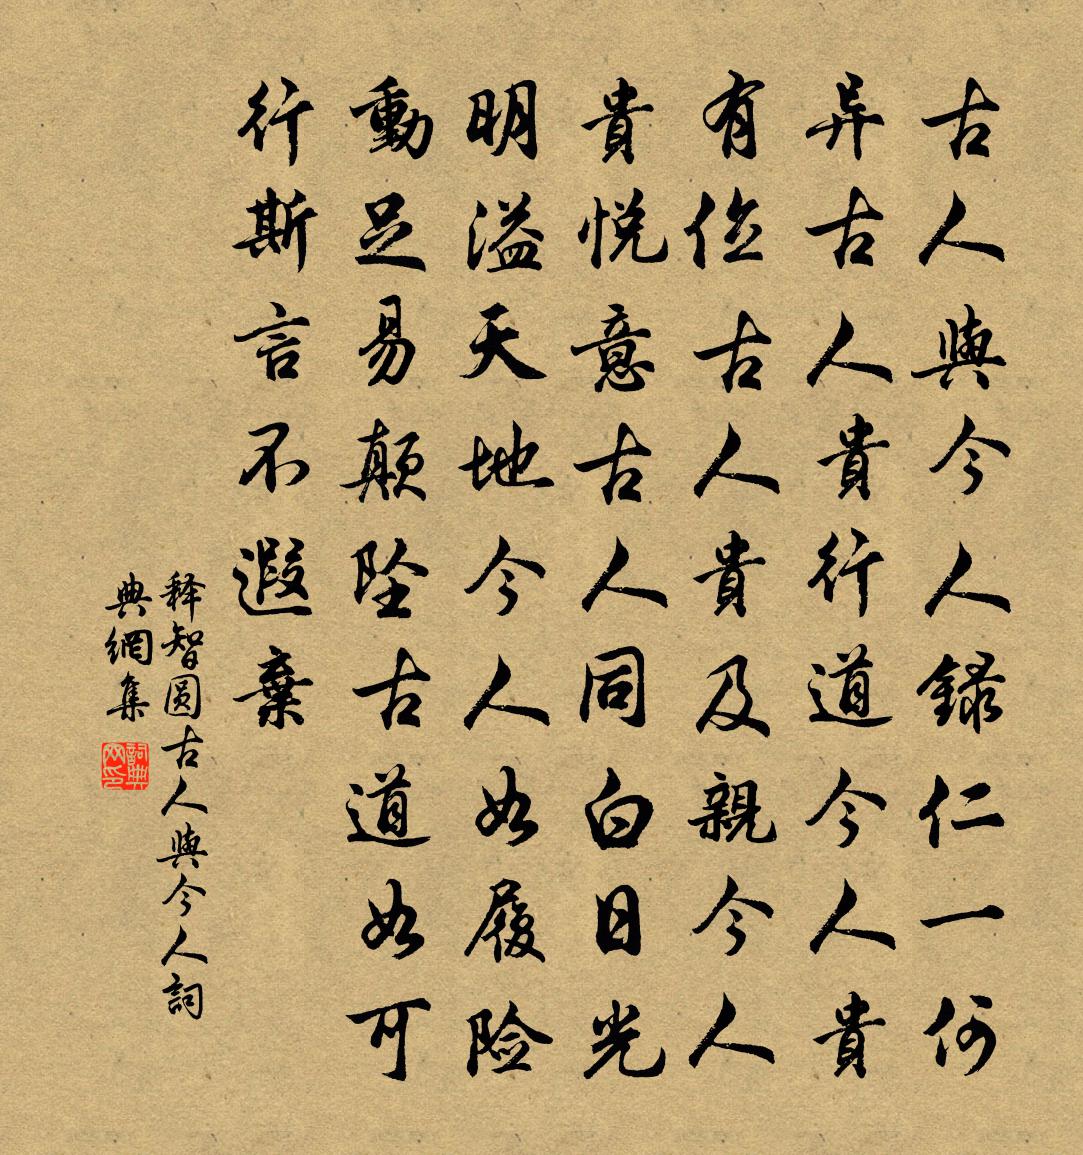 古人與今人録仁一何
异古人貴行道今人貴
有位古人貴及親今人
貴悦意古人同白日光
明溢天地今人如履险
動足易顛坠古道如可
行斯言不遐棄
释智圆古人與今人詞
典網集
詞典网印